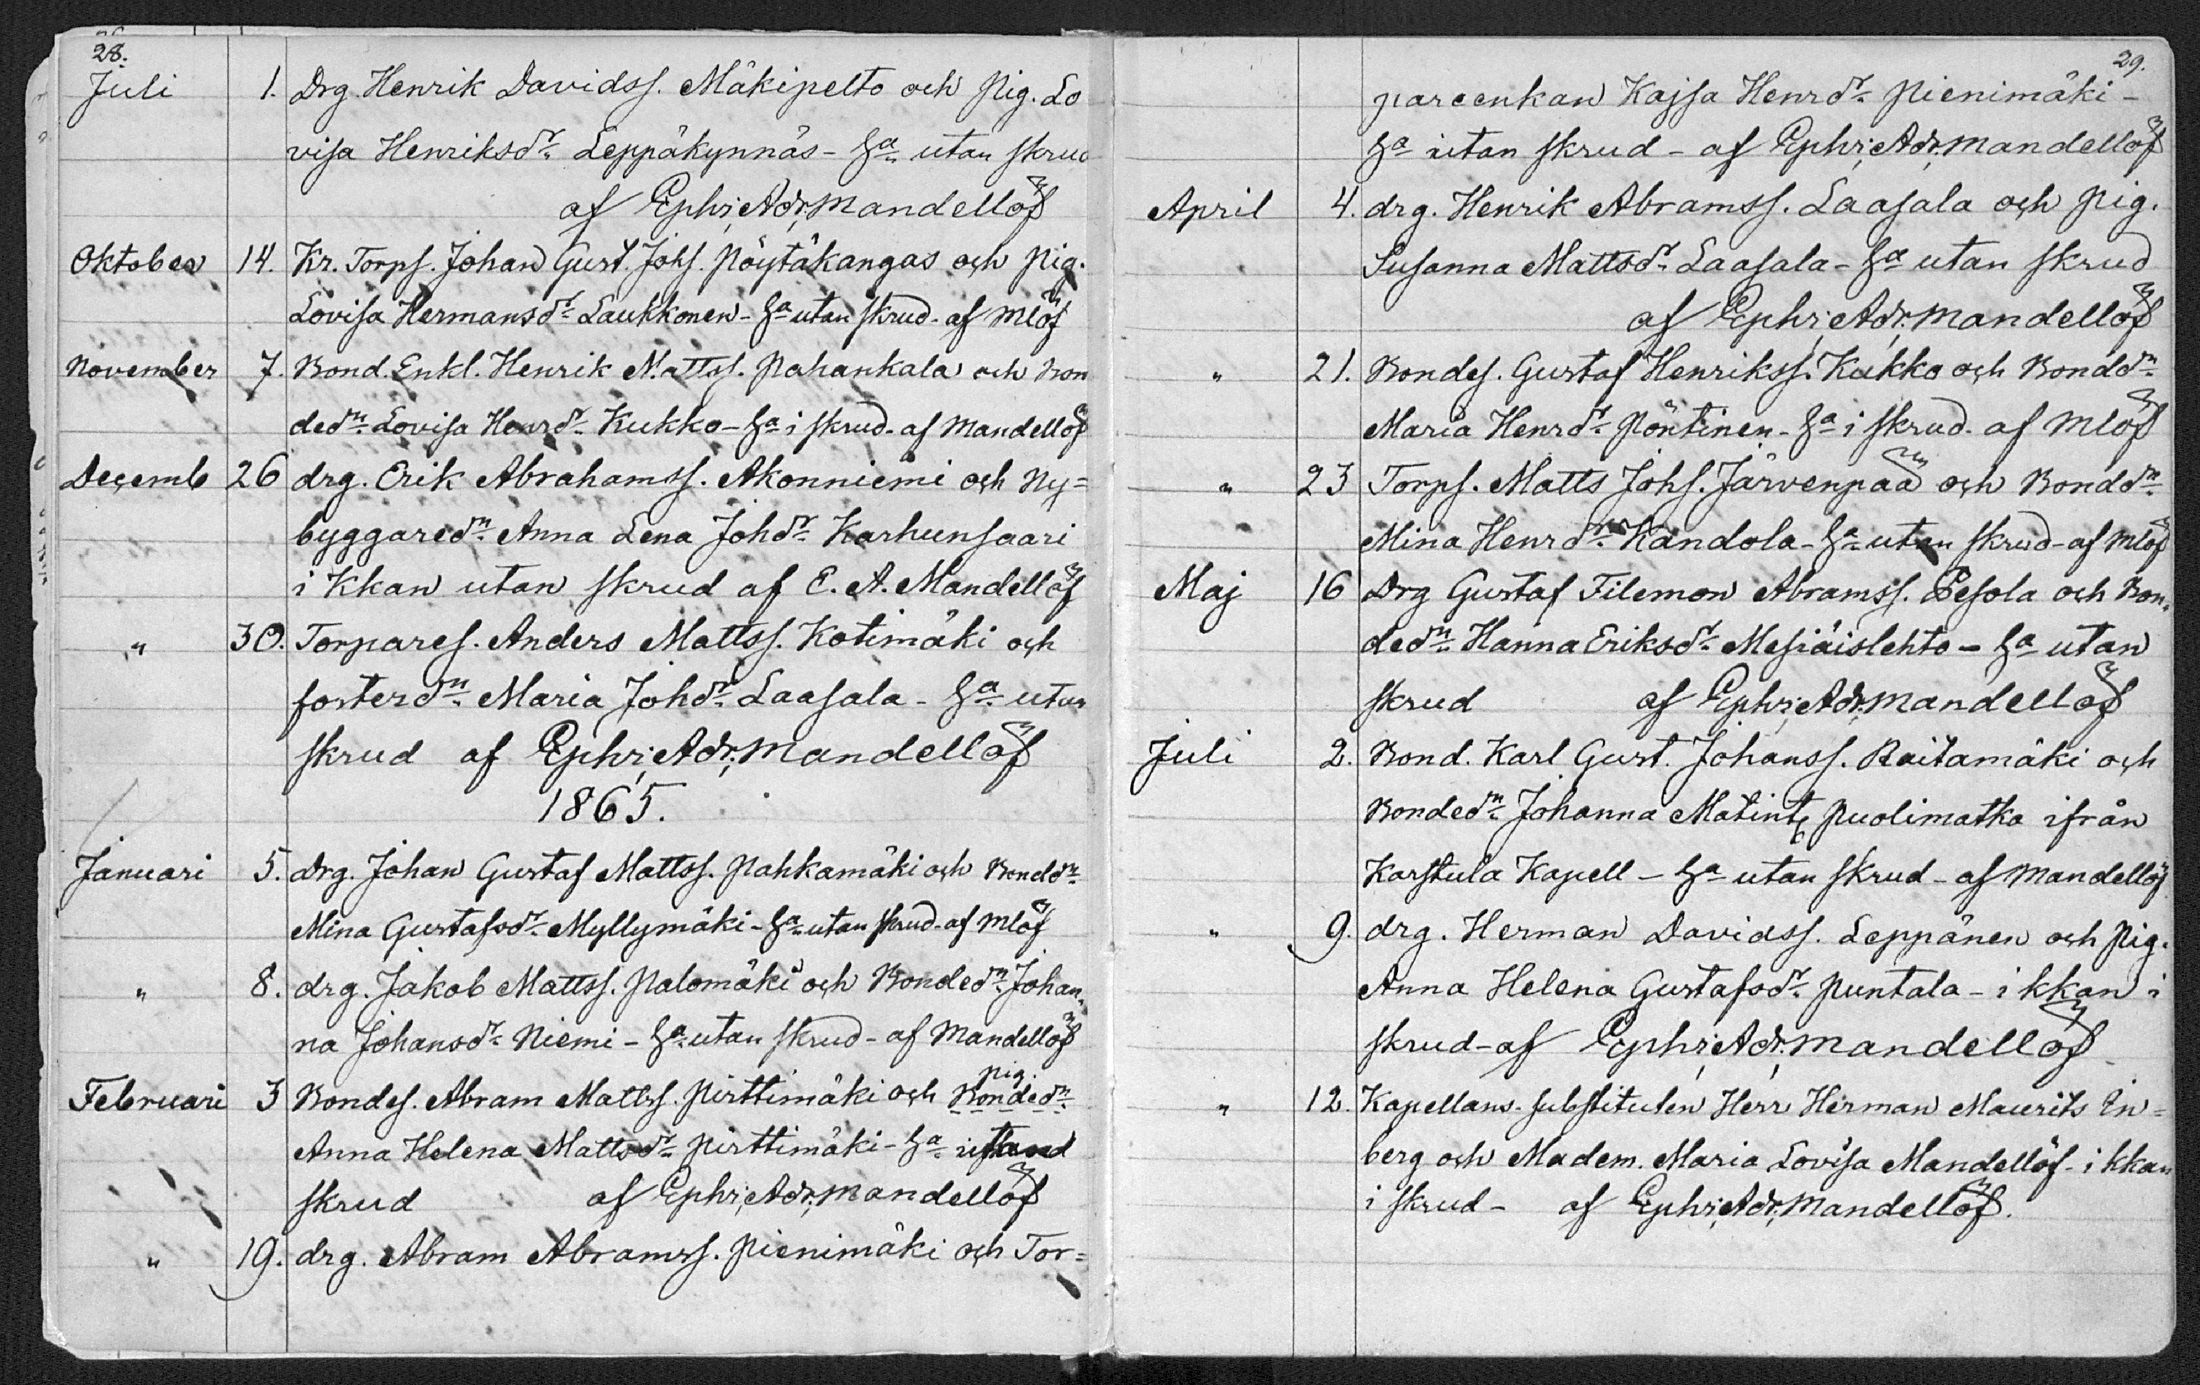 28.
Juli 1. Drg. Henrik Davidss. Mäkipelto och Pig. Lo
visa Henriksdr. Leppäkynnäs - ha utan skrud
af Ephr. Adr. Mandellöf
Oktober 14. Kr. Torps. Johan Gust. Johs. Pöytäkangas och Pig.
Lovisa Hermansdr. Laukkonen - ha utan skrud - af Mlöf
November 7. Bond. Enkl. Henrik Mattss. Pahankala och Bon
dedn. Lovisa Henrdr. Kukko - ha i skrud - af Mandellöf
Decemb 26 drg. Erik Abrahamss. Akonniemi och Ny=
byggaredn. Anna Lena Johdr. Karhunsaari
i Kkan utan skrud af E. A. Mandellöf
" 30. Torpares. Anders Mattss. Kotimäki och
fosterdn. Maria Johdr. Laasala - ha utan
skrud af Ephr. Adr. Mandellöf
1865.
Januari 5. drg. Johan Gustaf Mattss. Pahkamäki och Bonddn.
Mina Gustafsdr. Myllymäki - ha utan skrud - af Mlöf
" 8. drg. Jakob Mattss. Palomäki och Bondedn. Johan=
na Johansdr. Niemi - ha utan skrud - af Mandellöf
pig.
Februari 3 Bondes. Abram Mattss. Pirttimäki och Bondedn.
Anna Helena Mattsdr. Pirttimäki - ha
skrud af Ephr. Adr. Mandellöf
" 19. drg. Abram Abramss. Pienimäki och Tor=
29.
pareenkan Kajsa Henrdr. Pienimäki -
ha utan skrud - af Ephr. Adr. Mandellöf
April 4. drg. Henrik Abramss. Laasala och Pig.
Susanna Mattsdr. Laasala - ha utan skrud
af Ephr. Adr. Mandellöf
" 21. Bondes. Gustaf Henrikss. Kukko och Bonddn.
Maria Henrdr. Pöntinen - ha i skrud - af Mlöf
" 23 Torps. Matts Johs. Järvenpää och Bonddn.
Mina Henrdr. Kandola - ha utan skrud - af Mlöf
Maj 16 Drg Gustaf Filemon Abramss. Pesola och Bon=
dedn. Hanna Eriksdr. Mesiäislehto - ha utan
skrud af Ephr. Adr. Mandellöf
Juli 2. Bond. Karl Gust. Johanss. Raitamäki och
Bondedn. Johanna Matintr Puolimatka ifrån
Karstula Kapell - ha utan skrud - af Mandellöf
" 9. drg. Herman Davidss. Leppänen och Pig.
Anna Helena Gustafsdr. Puntala - i kkan i
skrud - af Ephr. Adr. Mandellöf
" 12. Kapellans-substituten Herr Herman Maurits In=
berg och Madem. Maria Lovisa Mandellöf - i kkan
i skrud - af Ephr. Adr. Mandellöf.